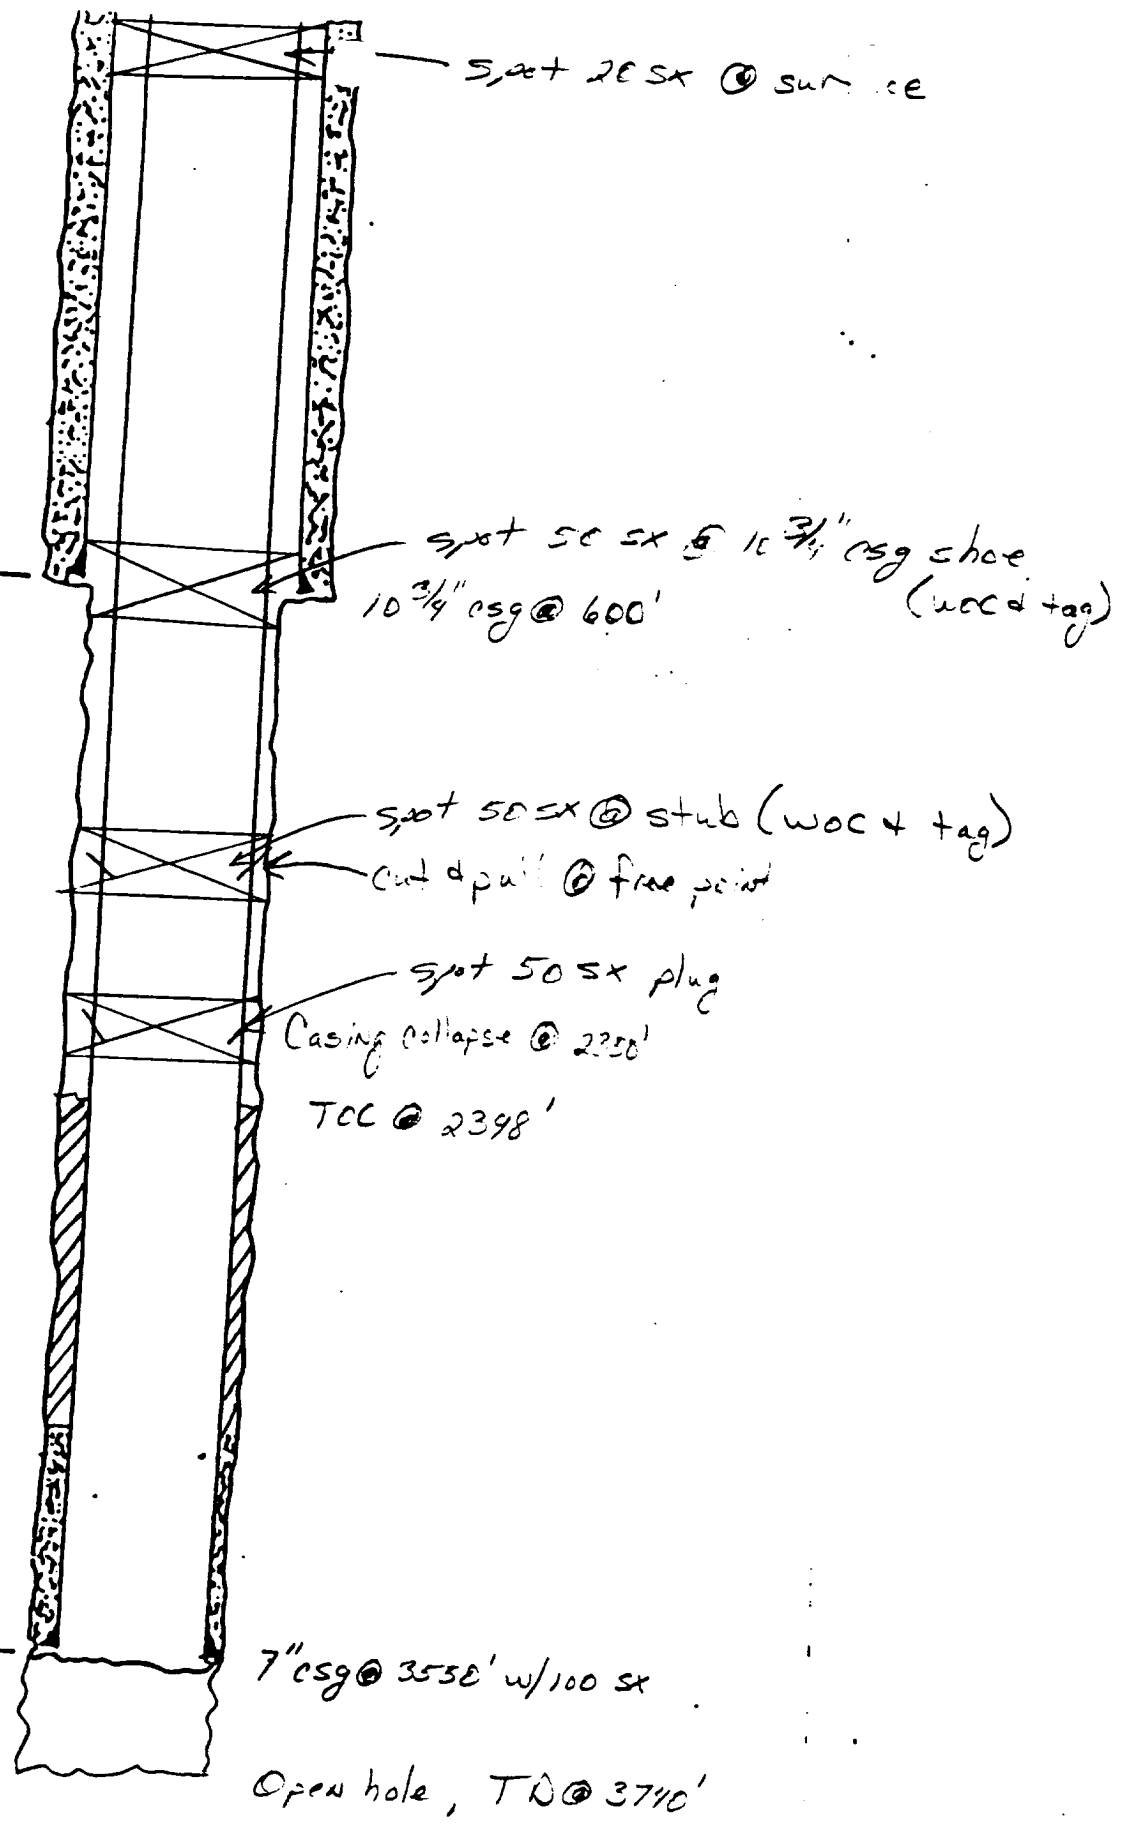 spot 20 sx @ surface
spot 50 sx @ 10 3/4" csg shoe
(woc & tag)
10 3/4" csg @ 600'
spot 50 sx @ stub (woc & tag)
cut & pull @ free point
spot 50 sx plug
Casing collapse @
TOC @ 2398'
7" csg @ w/100 sx
Open hole, TD @ 3740'